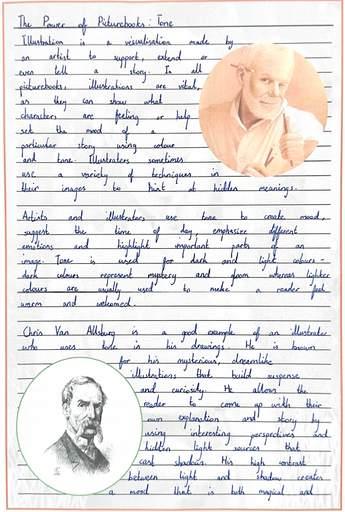 The Power of Picturebooks: Tone
Illustration is a visualisation made by
an artist to support, extend or
even tell a story. In all
picturebooks, illustrations are vital,
as they can show what
characters are feeling or help
set the mood of a
particular story using colour
and tone. Illustrators sometimes
use a variety of techniques in
their images to hint at hidden meanings.
Artists and illustrators use tone to create mood,
suggest the time of day, emphasise different
emotions and highlight important parts of an
image. Tone is used for dark and light colours -
dark colours represent mystery and doom whereas lighter
colours are usually used to make a reader feel
warm and welcomed.
Chris Van Allsburg is a good example of an illustrator
who uses tone in his drawings. He is known
for his mysterious, dreamlike
illustrations that build suspense
and curiosity. He allows the
reader to come up with their
own explanation and story by
using interesting perspectives and
hidden light sources that
cast shadows. His high contrast
between light and shadow creates
a mood that is both magical and